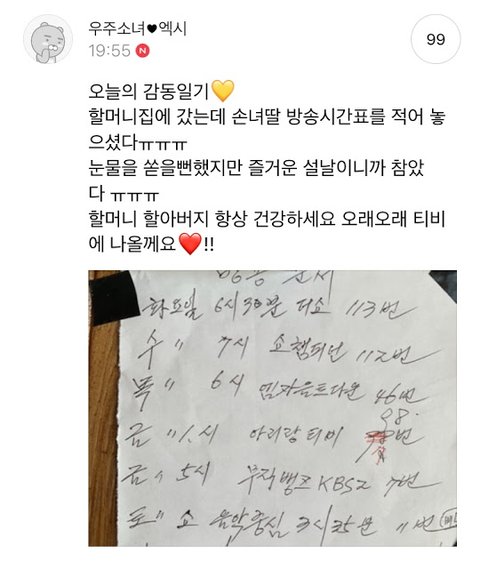 우주소녀♥엑시
19:55 N
99
오늘의 감동일기💛
할머니집에 갔는데 손녀딸 방송시간표를 적어 놓
으셨다ㅠㅠㅠ
눈물을 쏟을뻔했지만 즐거운 설날이니까 참았
다 ㅠㅠㅠ
할머니 할아버지 항상 건강하세요 오래오래 티비
에 나올께요❤️!!
화요일 6시 30분 더쇼 113번
수 〃 7시 쇼챔피언 112번
목 〃 6시 엠카운트다운 46번
98.
금 〃 1시 아리랑티비 번
금 〃 5시 뮤직뱅크 KBS2 7번
토 〃 쇼 음악중심 3시 35분 11번